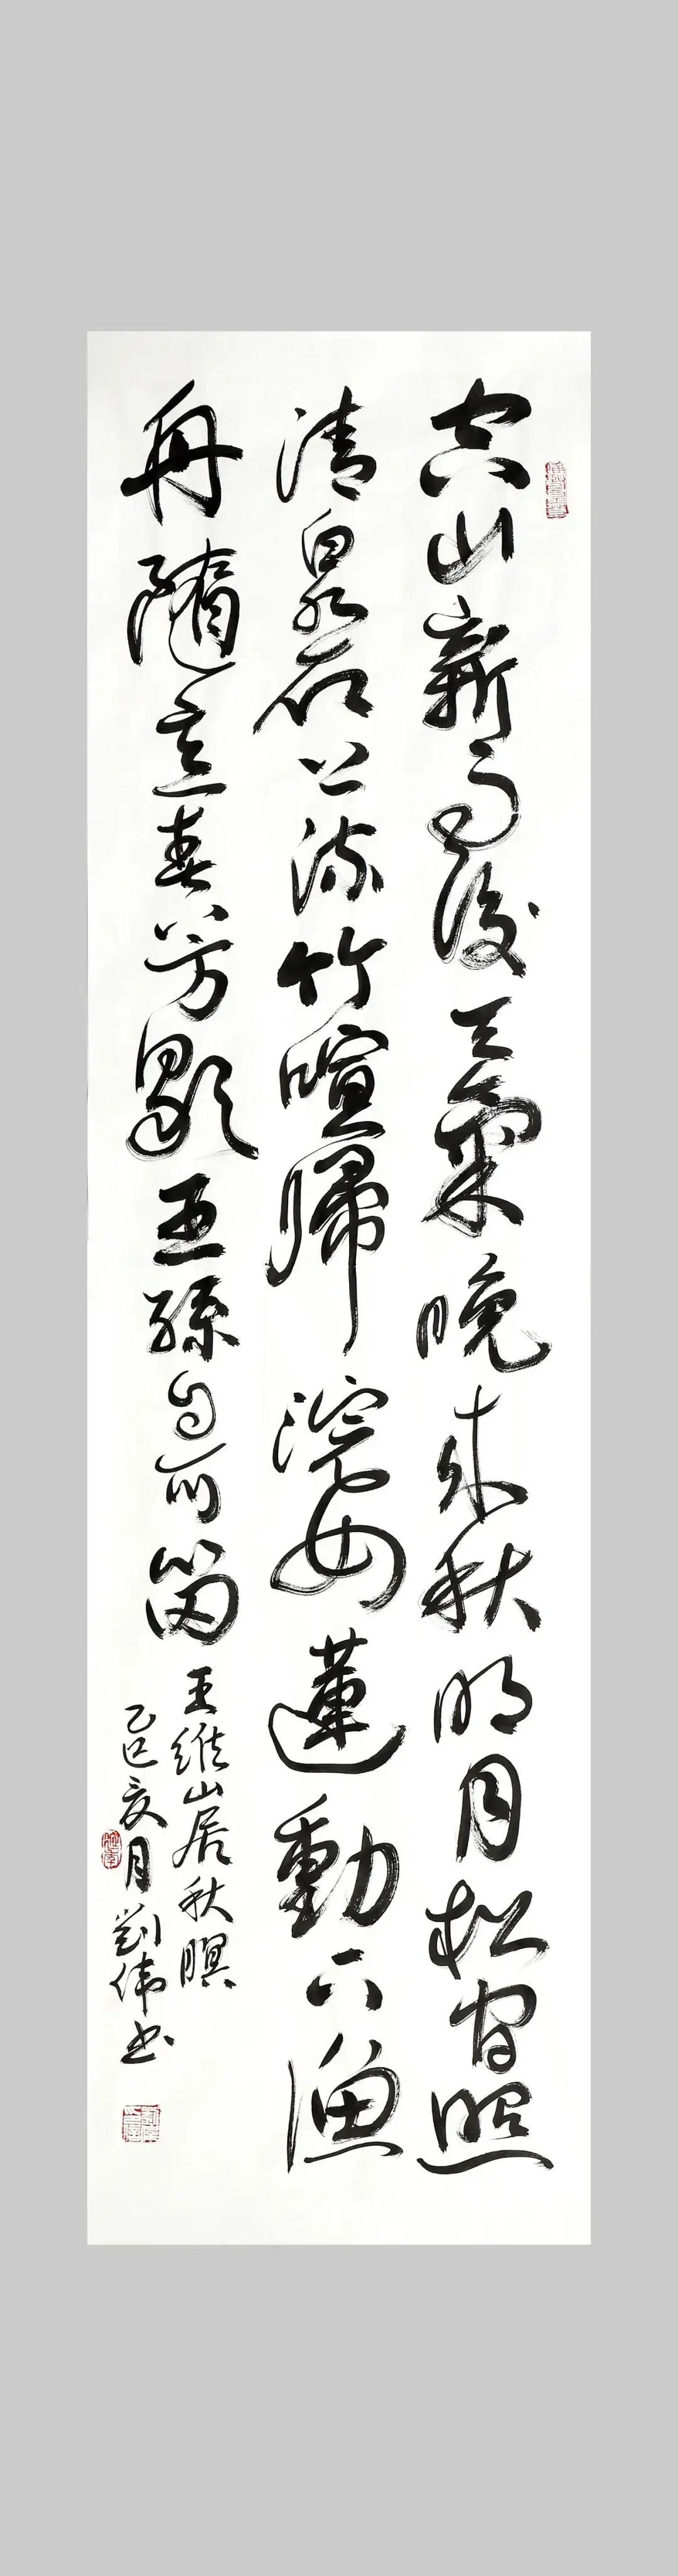 空山新雨後天氣晚来秋明月松間照
清泉石上流竹喧歸浣女蓮動下漁
舟隨意春芳歇王孫自可留
王維山居秋暝
乙巳亥月劉偉书